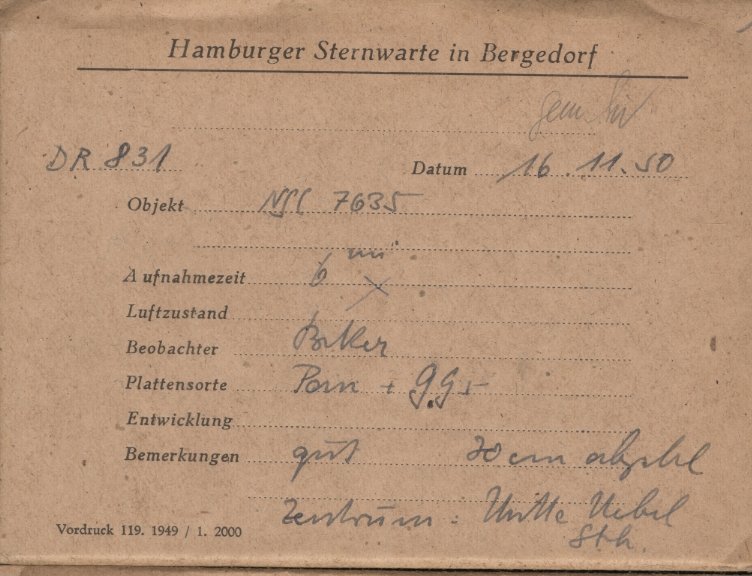 Hamburger Sternwarte in Bergedorf
DR 831 Datum 16.11.50
Objekt NGC 7635
Aufnahmezeit 6 min
Luftzustand
Beobachter
Plattensorte Pan + GG5
Entwicklung
Bemerkungen gut 20 cm
Zentrum: Mitte Nebel
Vordruck 119. 1949 / 1. 2000